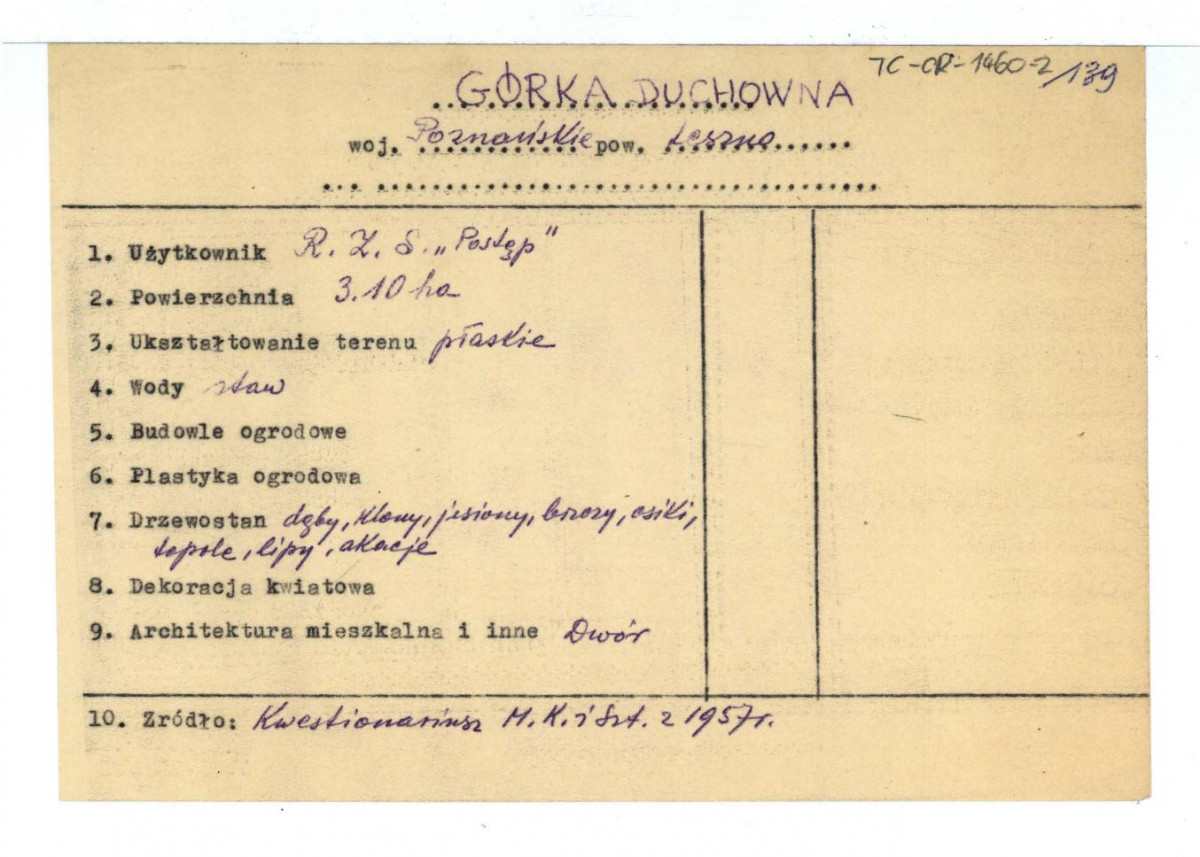 TC-CR-1460-2/139
GÓRKA DUCHOWNA
woj. Poznańskie pow. Leszno
1. Użytkownik R. Z. S. „Postęp"
2. Powierzchnia 3.10 ha
3. Ukształtowanie terenu płaskie
4. Wody staw
5. Budowle ogrodowe
6. Plastyka ogrodowa
7. Drzewostan dęby, klony, jesiony, brzozy, osiki,
topole, lipy, akacje
8. Dekoracja kwiatowa
9. Architektura mieszkalna i inne Dwór
10. Zródło: Kwestionariusz M. K. i Szt. z 1957 r.